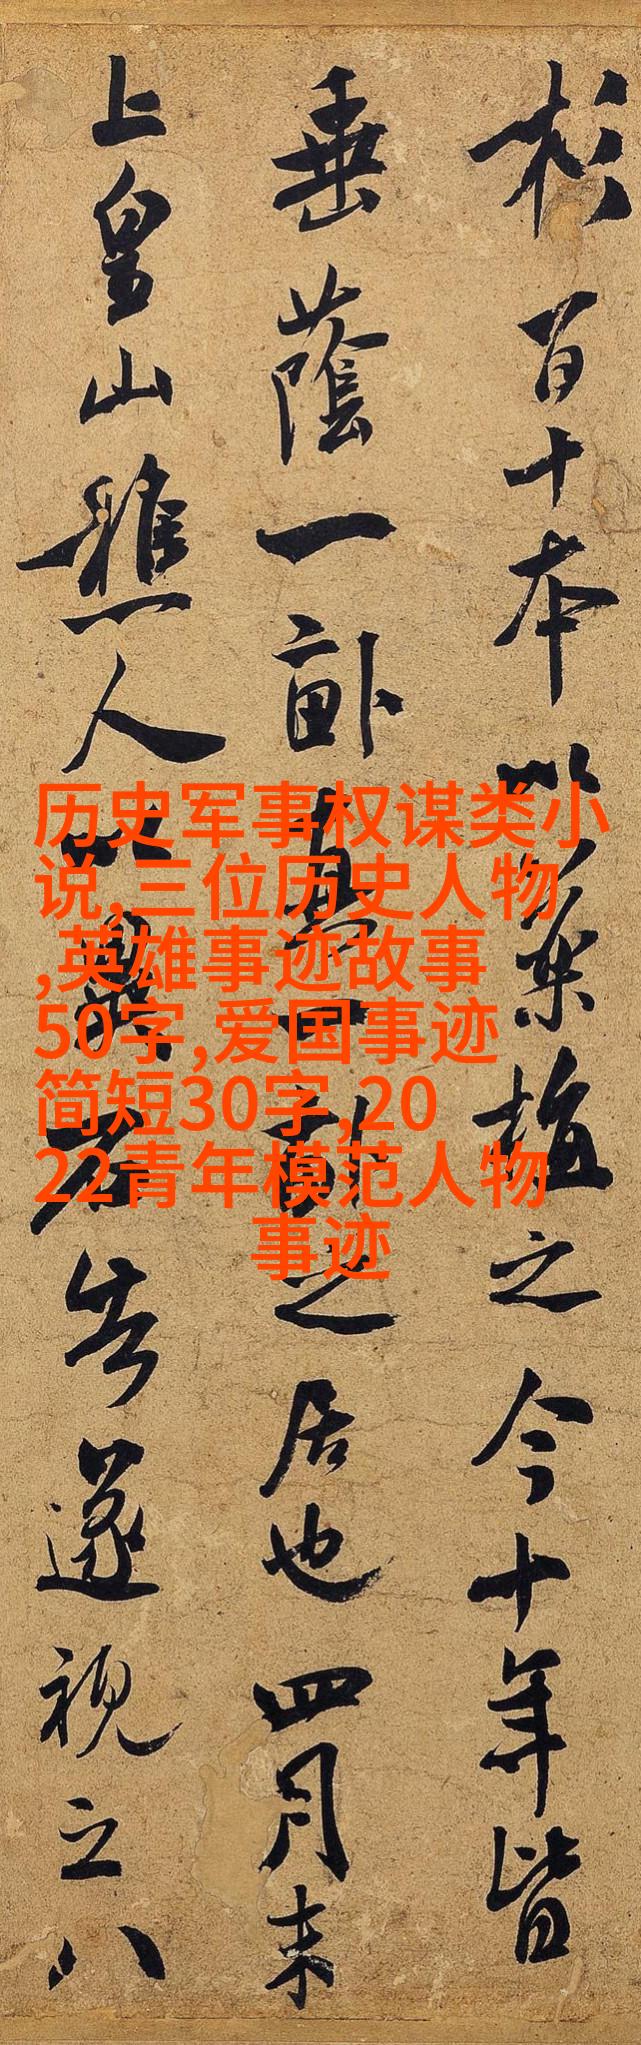 杉百十本以藥植之今十年皆
垂蔭一畝真一畝之居也四月末
上皇山樵人以異石告遂視之八
历史军事权谋类小
说,三位历史人物
,英雄事迹故事
50字,爱国事迹
简短30字,20
22青年模范人物
事迹